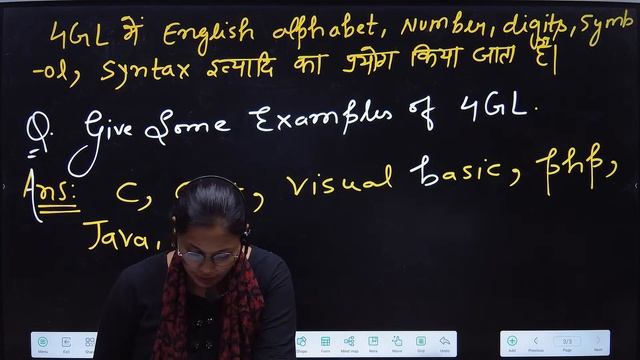 4GL में English alphabet, Number, digits, Symb
-ol, Syntax इत्यादि का प्रयोग किया जाता है।
Q. Give Some Examples of 4GL.
Ans: C, visual basic, php,
Java,
Menu Exit Shape Form Mind map Note Move Grid Undo Add Previous 3/3 Page Next